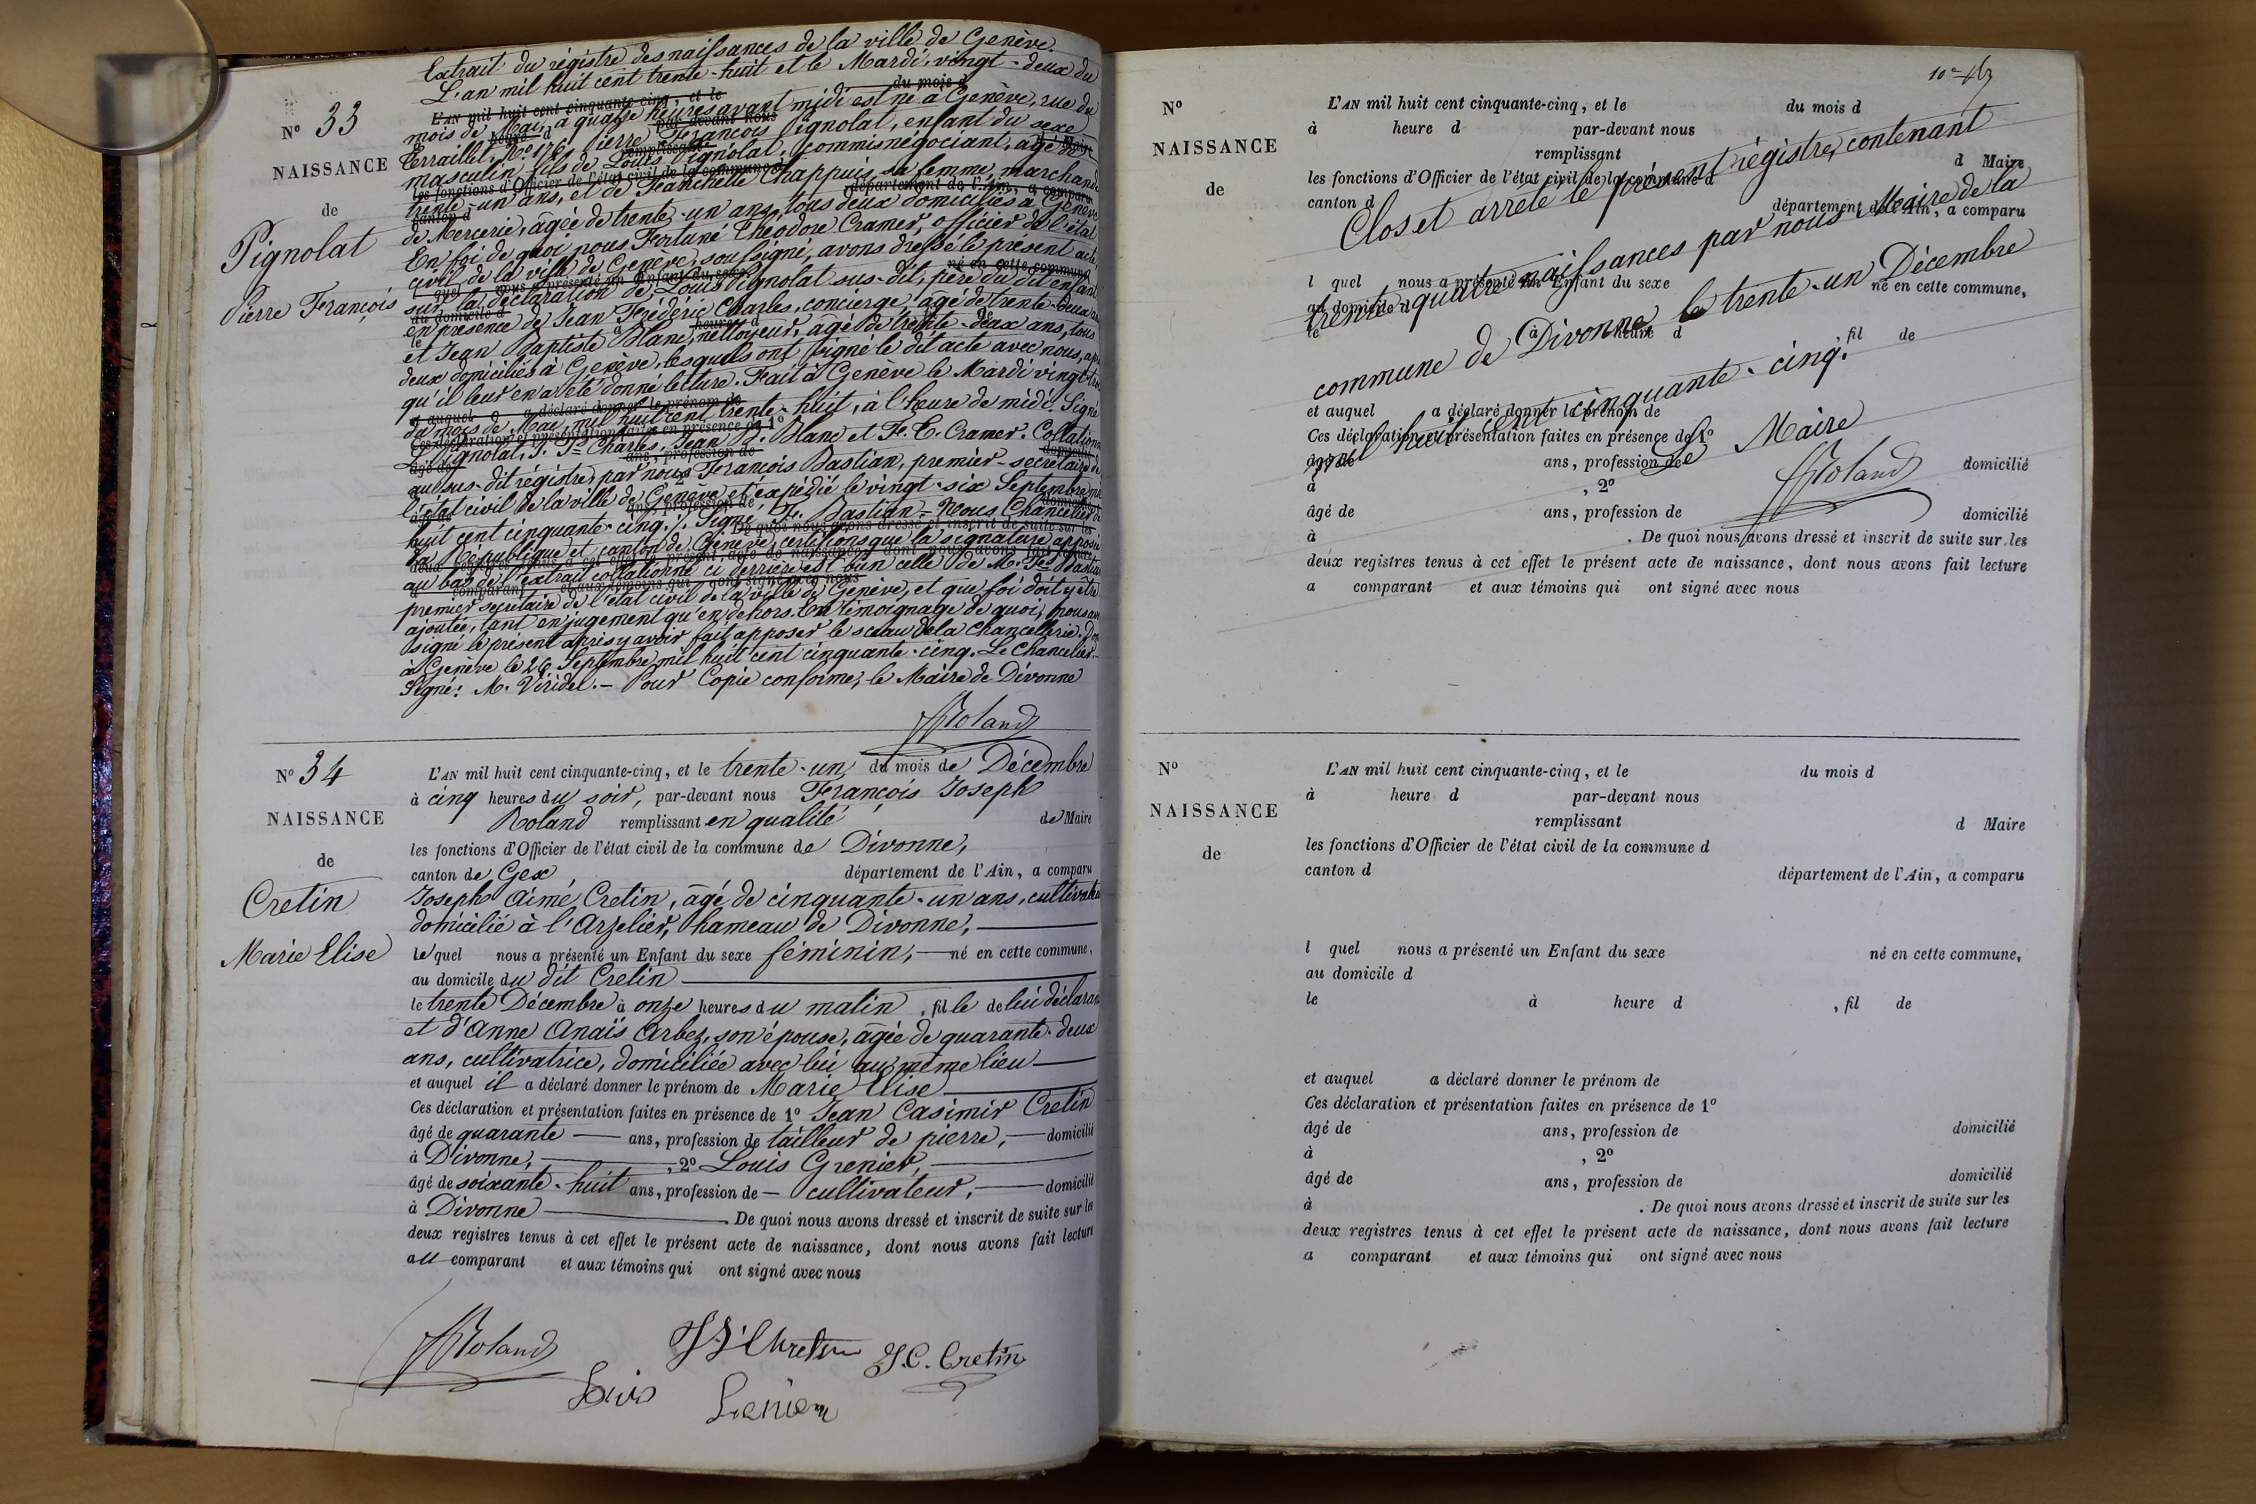 Extrait du régistre des naissances de la ville de Genève.
L'an mil huit cent trente-huit et le Mardi vingt-deux du
L'AN mil huit cent cinquante-cinq, et le du mois d
mois de Mai, à quatre heures avant midi est né à Genève, rue du
N° 33
Terraillet, N° 176, Pierre François Pignolat, enfant du sexe
NAISSANCE
masculin, fils de Louis Pignolat, commis négociant, âgé de
les fonctions d'Officier de l'état civil de la commune d
trente-un ans, et de Franchette Chappuis, sa femme, marchande
département de l'Ain, a comparu
de
canton d
de Mercerie, âgée de trente-un ans, tous deux domiciliés à Genève
Pignolat
En foi de quoi nous Fortuné Théodore Cramer, officier de l'état
civil de la ville de Genève, soussigné, avons dressé le présent acte
né en cette commune
l quel nous a présenté un Enfant du sexe
Pierre François
sur la déclaration de Louis Pignolat sus-dit, père du dit enfant
au domicile d
en présence de Jean Frédéric Charles, concierge, âgé de trente-deux ans
et Jean Baptiste Blanc, nettoyeur, âgé de trente-deux ans, tous
deux domiciliés à Genève, lesquels ont signé le dit acte avec nous, après
qu'il leur en a été donné lecture. Fait à Genève le Mardi vingt-
et auquel a déclaré donner le prénom de
du mois de Mai, mil huit cent trente-huit, à l'heure de midi. Signé
Ces déclaration et présentation faites en présence de 1°
L. Pignolat, J. F. Charles, Jean B. Blanc et F. T. Cramer. Collationné
âgé de ans, profession de
au sus-dit régistre, par nous François Bastian, premier-secrétaire de
l'état civil de la ville de Genève et expédié le vingt-six Septembre mil
âgé de ans, profession de
huit cent cinquante-cinq. Signé, Fr. Bastian. – Nous Chancelier de
De quoi nous avons dressé et inscrit de suite sur les
la République et canton de Genève, certifions que la signature apposée
deux registres tenus à cet effet le présent acte de naissance, dont nous avons fait lecture
au bas de l'extrait collationné ci derrière est bien celle de M. Fs. Bastian
a comparant et aux témoins qui ont signé avec nous
premier secrétaire de l'état civil de la ville de Genève, et que foi doit y être
ajoutée, tant en jugement qu'en dehors. En témoignage de quoi, nous avons
signé le présent après y avoir fait apposer le sceau de la Chancellerie.
à Genève le 26 Septembre mil huit cent cinquante-cinq. Le Chancelier.
Signé: M. Viridet. – Pour Copie conforme, le Maire de Divonne
Roland
N° 34
L'AN mil huit cent cinquante-cinq, et le trente-un du mois de Décembre
à cinq heures du soir, par-devant nous François Joseph
NAISSANCE
Roland remplissant en qualité de Maire
les fonctions d'Officier de l'état civil de la commune de Divonne,
de
canton de Gex département de l'Ain, a comparu
Cretin
Joseph Aimé Cretin, âgé de cinquante-un ans, cultivateur
domicilié à l'Arzelier, hameau de Divonne,
Marie Elise
lequel nous a présenté un Enfant du sexe féminin, né en cette commune,
au domicile du dit Cretin
le trente Décembre à onze heures du matin, fille de lui déclarant
et d'Anne Anaïs Arbez, son épouse, âgée de quarante-deux
ans, cultivatrice, domiciliée avec lui au même lieu
et auquel il a déclaré donner le prénom de Marie Elise
Ces déclaration et présentation faites en présence de 1° Jean Casimir Cretin
âgé de quarante ans, profession de tailleur de pierre, domicilié
à Divonne, , 2° Louis Grenier,
âgé de soixante-huit ans, profession de cultivateur, domicilié
à Divonne . De quoi nous avons dressé et inscrit de suite sur les
deux registres tenus à cet effet le présent acte de naissance, dont nous avons fait lecture
au comparant et aux témoins qui ont signé avec nous
Roland
J. C. Cretin
Louis
N° L'AN mil huit cent cinquante-cinq, et le du mois d
à heure d par-devant nous
NAISSANCE
remplissant d Maire
de
les fonctions d'Officier de l'état civil de la commune d
canton d département de l'Ain, a comparu
l quel nous a présenté un Enfant du sexe né en cette commune,
au domicile d
le à heure d , fil de
et auquel a déclaré donner le prénom de
Ces déclaration et présentation faites en présence de 1°
âgé de ans, profession de domicilié
à , 2°
âgé de ans, profession de domicilié
à . De quoi nous avons dressé et inscrit de suite sur les
deux registres tenus à cet effet le présent acte de naissance, dont nous avons fait lecture
a comparant et aux témoins qui ont signé avec nous
Clos et arrêté le présent régistre, contenant
trente-quatre naissances par nous Maire de la
commune de Divonne, le trente-un Décembre
mil huit cent cinquante-cinq.
Le Maire
Roland
N° L'AN mil huit cent cinquante-cinq, et le du mois d
à heure d par-devant nous
NAISSANCE
remplissant d Maire
de
les fonctions d'Officier de l'état civil de la commune d
canton d département de l'Ain, a comparu
l quel nous a présenté un Enfant du sexe né en cette commune,
au domicile d
le à heure d , fil de
et auquel a déclaré donner le prénom de
Ces déclaration et présentation faites en présence de 1°
âgé de ans, profession de domicilié
à , 2°
âgé de ans, profession de domicilié
à . De quoi nous avons dressé et inscrit de suite sur les
deux registres tenus à cet effet le présent acte de naissance, dont nous avons fait lecture
a comparant et aux témoins qui ont signé avec nous